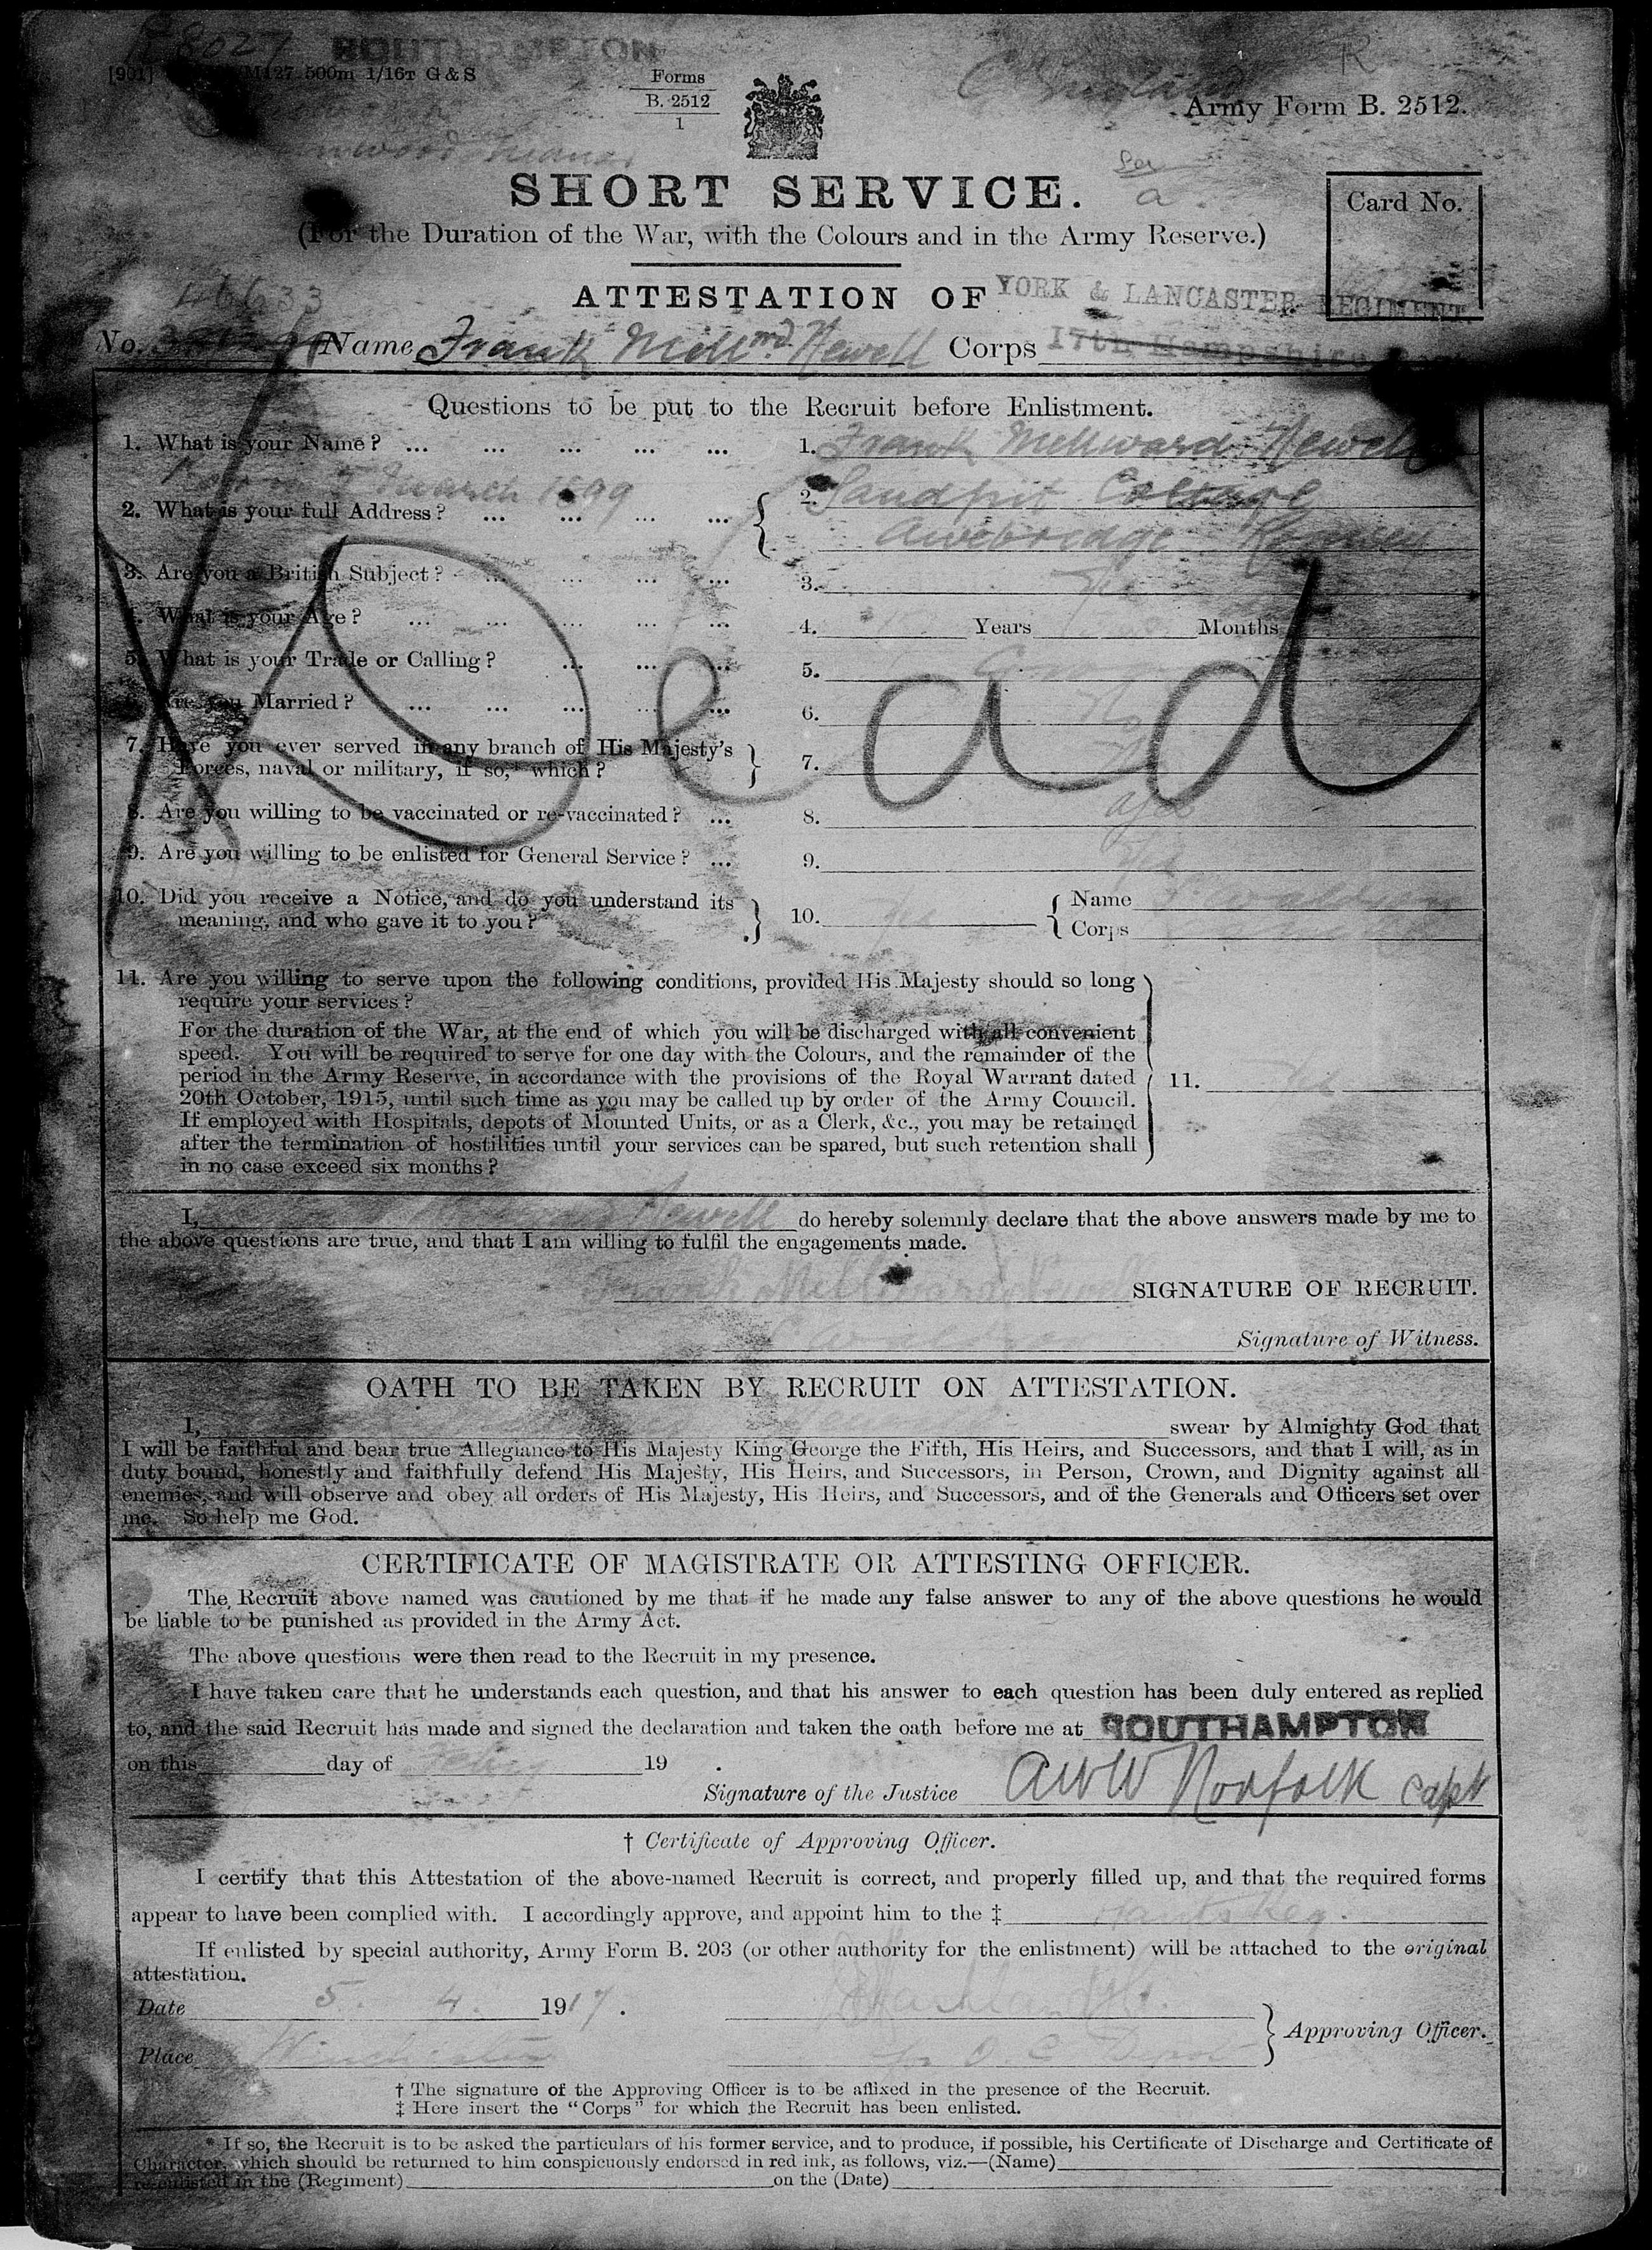 8027 SOUTHAMPTON
[901] M127 500m 1/16T G & S
Forms
B. 2512
1
R
Army Form B. 2512.
a
SHORT SERVICE.
Card No.
(For the Duration of the War, with the Colours and in the Army Reserve.)
46633
ATTESTATION OF YORK & LANCASTER REGIMENT.
No. Name Frank Millwrd. Newell Corps 17th Hampshire
Questions to be put to the Recruit before Enlistment.
1. What is your Name? ... ... ... ... ... 1. Frank Millward Newell
March 1899
2. What is your full Address? ... ... ... ... { 2. Sandpit Cottage
Awbridge Romsey
3. Are you a British Subject? ... ... ... ... 3. Yes
4. What is your Age? ... ... ... ... ... 4. Years Months
5. What is your Trade or Calling? ... ... ... 5.
6. Are you Married? ... ... ... ... ... 6. No
7. Have you ever served in any branch of His Majesty's
Forces, naval or military, if so,* which? } 7. No
8. Are you willing to be vaccinated or re-vaccinated? ... 8. Yes
9. Are you willing to be enlisted for General Service? ... 9.
Dead
10. Did you receive a Notice, and do you understand its
meaning, and who gave it to you? } 10. Yes { Name
Corps
11. Are you willing to serve upon the following conditions, provided His Majesty should so long
require your services?
For the duration of the War, at the end of which you will be discharged with all convenient
speed. You will be required to serve for one day with the Colours, and the remainder of the
period in the Army Reserve, in accordance with the provisions of the Royal Warrant dated
20th October, 1915, until such time as you may be called up by order of the Army Council.
If employed with Hospitals, depots of Mounted Units, or as a Clerk, &c., you may be retained
after the termination of hostilities until your services can be spared, but such retention shall
in no case exceed six months?
11. Yes
I, Newell do hereby solemnly declare that the above answers made by me to
the above questions are true, and that I am willing to fulfil the engagements made.
Frank Millward Newell SIGNATURE OF RECRUIT.
Signature of Witness.
OATH TO BE TAKEN BY RECRUIT ON ATTESTATION.
I, Newell swear by Almighty God that
I will be faithful and bear true Allegiance to His Majesty King George the Fifth, His Heirs, and Successors, and that I will, as in
duty bound, honestly and faithfully defend His Majesty, His Heirs, and Successors, in Person, Crown, and Dignity against all
enemies, and will observe and obey all orders of His Majesty, His Heirs, and Successors, and of the Generals and Officers set over
me. So help me God.
CERTIFICATE OF MAGISTRATE OR ATTESTING OFFICER.
The Recruit above named was cautioned by me that if he made any false answer to any of the above questions he would
be liable to be punished as provided in the Army Act.
The above questions were then read to the Recruit in my presence.
I have taken care that he understands each question, and that his answer to each question has been duly entered as replied
to, and the said Recruit has made and signed the declaration and taken the oath before me at SOUTHAMPTON
on this day of 19 .
Signature of the Justice AWW Norfolk Capt
† Certificate of Approving Officer.
I certify that this Attestation of the above-named Recruit is correct, and properly filled up, and that the required forms
appear to have been complied with. I accordingly approve, and appoint him to the ‡ Hants Reg.
If enlisted by special authority, Army Form B. 203 (or other authority for the enlistment) will be attached to the original
attestation.
Date 5. 4. 1917.
Place Winchester for O C Depot } Approving Officer.
† The signature of the Approving Officer is to be affixed in the presence of the Recruit.
‡ Here insert the "Corps" for which the Recruit has been enlisted.
* If so, the Recruit is to be asked the particulars of his former service, and to produce, if possible, his Certificate of Discharge and Certificate of
Character, which should be returned to him conspicuously endorsed in red ink, as follows, viz.—(Name)
re-enlisted in the (Regiment) on the (Date)